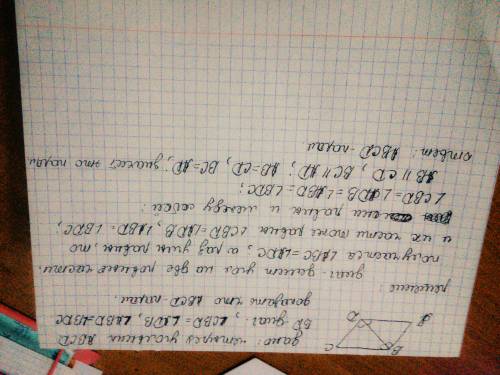 дано: четырех угольник ABCD
BD-диаг. ∠CBD=∠ADB, ∠ABD=∠BDC
доказать что ABCD-парал.
решение
диаг-делит угол на две равные части.
получается ∠ABC=∠ADC, а раз углы равны, то
и их части тоже равны ∠CBD=∠ADB, ∠ABD=∠BDC;
равны и между собой:
∠CBD=∠ADB=∠ABD=∠BDC;
AB ∥ CD, BC ∥ AD; AB=CD, BC=AD; значит это парал.
ответ: ABCD-парал
A
B
C
D